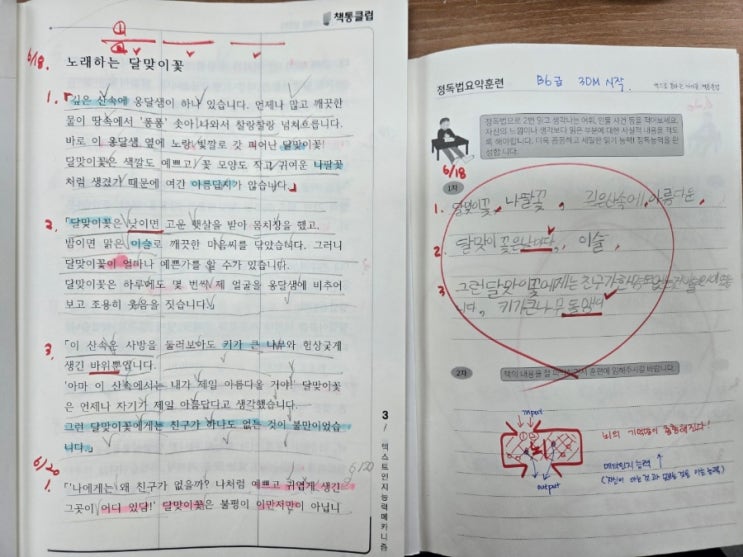 책통클럽
①
②
6/18.
노래하는 달맞이꽃
1. 「깊은 산속에 옹달샘이 하나 있습니다. 언제나 맑고 깨끗한
물이 땅속에서 '퐁퐁' 솟아 나와서 찰랑찰랑 넘쳐흐릅니다.
바로 이 옹달샘 옆에 노랑 빛깔로 갓 피어난 달맞이꽃!
달맞이꽃은 색깔도 예쁘고 꽃 모양도 작고 귀여운 나팔꽃
처럼 생겼기 때문에 여간 아름답지가 않습니다.」
2. 「달맞이꽃은 낮이면 고운 햇살을 받아 몸치장을 했고,
밤이면 맑은 이슬로 깨끗한 마음씨를 닦았습니다. 그러니
달맞이꽃이 얼마나 예쁜가를 알 수가 있습니다.
달맞이꽃은 하루에도 몇 번씩 제 얼굴을 옹달샘에 비추어
보고 조용히 웃음을 짓습니다.」
3. 「이 산속은 사방을 둘러보아도 키가 큰 나무와 험상궂게
생긴 바위뿐입니다.
'아마 이 산속에서는 내가 제일 아름다울 거야!' 달맞이꽃
은 언제나 자기가 제일 아름답다고 생각했습니다.
그런 달맞이꽃에게는 친구가 하나도 없는 것이 불만이었습
니다.」
6/20
6/20
1. 「'나에게는 왜 친구가 없을까? 나처럼 예쁘고 귀엽게 생긴
그곳이 어디 있담!' 달맞이꽃은 불평이 이만저만이 아닙니
3
텍스트인지능력메카니즘
정독법요약훈련
B6급 3DM 시작.
정독법으로 2번 읽고 생각나는 어휘, 인물 사건 등을 적어보세요.
자신의 느낌이나 생각보다 읽은 부분에 대한 사실적 내용을 적도
록 해야합니다. 더욱 꼼꼼하고 세밀한 읽기 능력! 정독능력을 완
성합니다.
6/18
1차
1. 달맞이꽃, 나팔꽃, 깊은산속에, 아름다운,
2. 달맞이 꽃은, 이슬,
3. 그런 달맞이꽃에게는 친구가
니다, 키가큰나무
2차
책의 내용을 잘 훈련에 임해주시길 바랍니다.
input
①②
output
뇌의 기억력이 ! 
메타인지 능력 ↑
(자신이 아는 것과 모르는 것을 아는 능력)